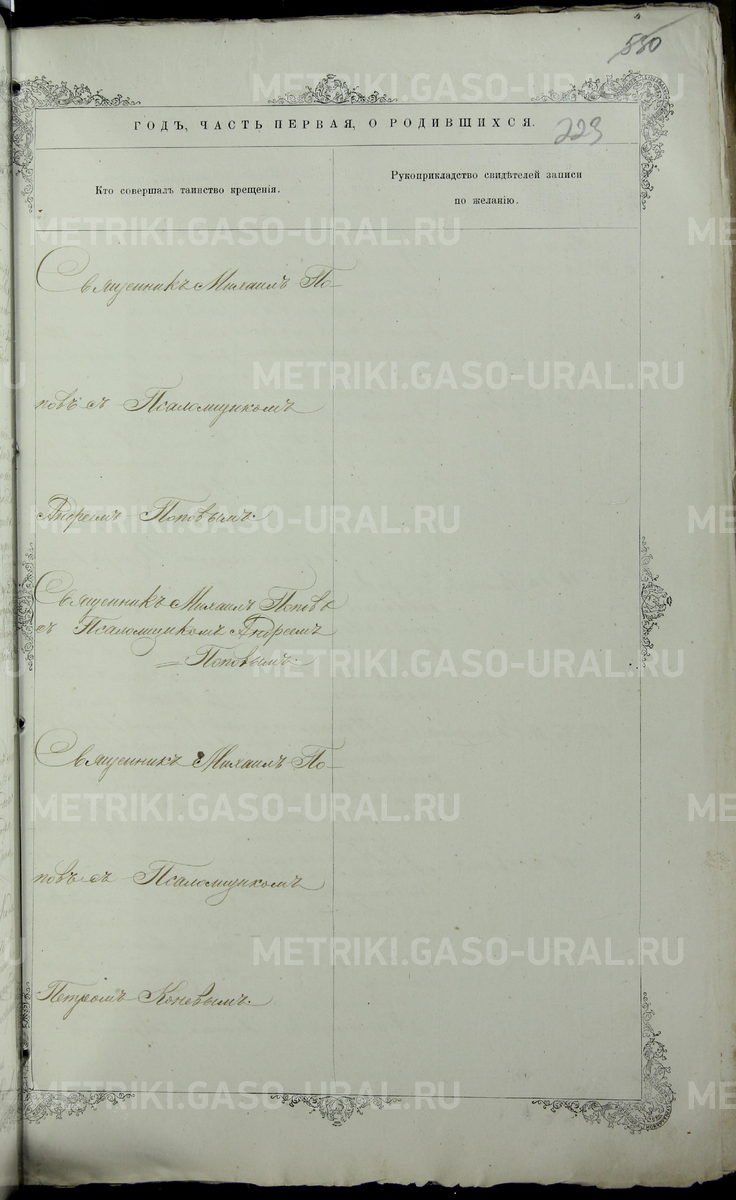 550
ГОДЪ, ЧАСТЬ ПЕРВАЯ, О РОДИВШИХСЯ.
223
Кто совершалъ таинство крещенія.
Рукоприкладство свидѣтелей записи
по желанію.
Священникъ Михаилъ По-
повъ съ Псаломщикомъ
Андреемъ Поповымъ.
Священникъ Михаилъ Поповъ
съ Псаломщикомъ Андреемъ
Поповымъ.
Священникъ Михаилъ По-
повъ съ Псаломщикомъ
Петромъ Коневымъ.
METRIKI.GASO-URAL.RU